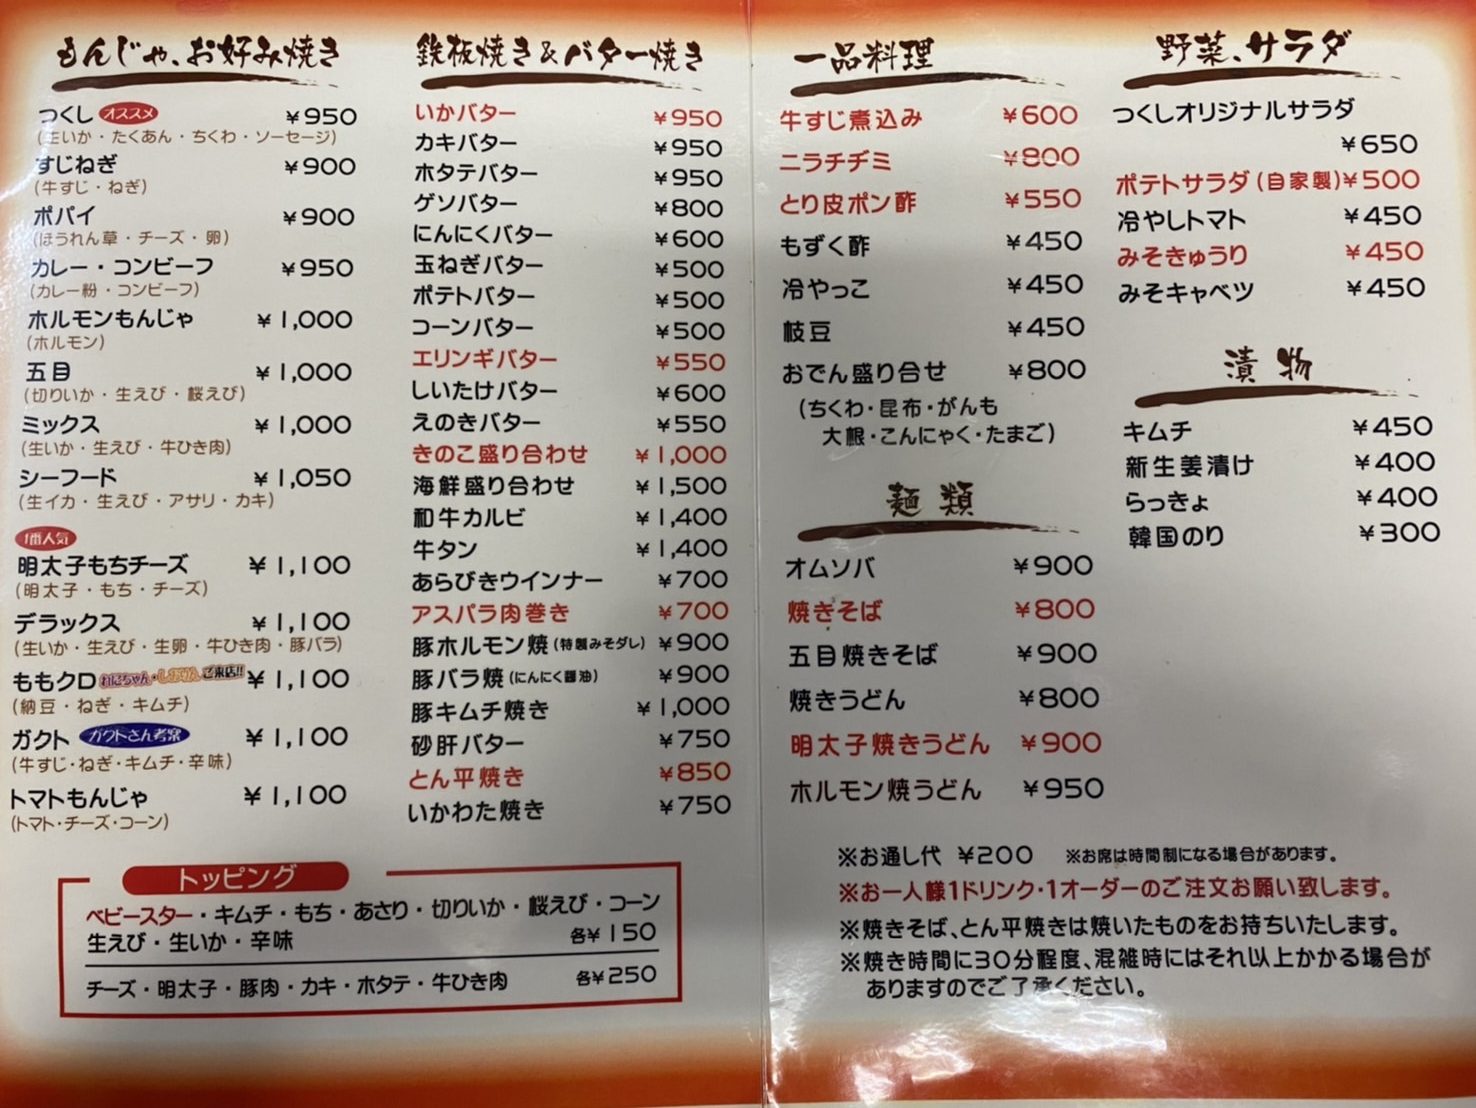 もんじゃ、お好み焼き
つくし オススメ ¥950
(生いか・たくあん・ちくわ・ソーセージ)
すじねぎ ¥900
(牛すじ・ねぎ)
ポパイ ¥900
(ほうれん草・チーズ・卵)
カレー・コンビーフ ¥950
(カレー粉・コンビーフ)
ホルモンもんじゃ ¥1,000
(ホルモン)
五目 ¥1,000
(切りいか・生えび・桜えび)
ミックス ¥1,000
(生いか・生えび・牛ひき肉)
シーフード ¥1,050
(生イカ・生えび・アサリ・カキ)
1番人気
明太子もちチーズ ¥1,100
(明太子・もち・チーズ)
デラックス ¥1,100
(生いか・生えび・生卵・牛ひき肉・豚バラ)
ももクロ ご来店!! ¥1,100
(納豆・ねぎ・キムチ)
ガクト ガクトさん考案 ¥1,100
(牛すじ・ねぎ・キムチ・辛味)
トマトもんじゃ ¥1,100
(トマト・チーズ・コーン)
鉄板焼き&バター焼き
いかバター ¥950
カキバター ¥950
ホタテバター ¥950
ゲソバター ¥800
にんにくバター ¥600
玉ねぎバター ¥500
ポテトバター ¥500
コーンバター ¥500
エリンギバター ¥550
しいたけバター ¥600
えのきバター ¥550
きのこ盛り合わせ ¥1,000
海鮮盛り合わせ ¥1,500
和牛カルビ ¥1,400
牛タン ¥1,400
あらびきウインナー ¥700
アスパラ肉巻き ¥700
豚ホルモン焼(特製みそダレ) ¥900
豚バラ焼(にんにく醤油) ¥900
豚キムチ焼き ¥1,000
砂肝バター ¥750
とん平焼き ¥850
いかわた焼き ¥750
トッピング
ベビースター・キムチ・もち・あさり・切りいか・桜えび・コーン
生えび・生いか・辛味 各¥150
チーズ・明太子・豚肉・カキ・ホタテ・牛ひき肉 各¥250
一品料理
牛すじ煮込み ¥600
ニラチヂミ ¥800
とり皮ポン酢 ¥550
もずく酢 ¥450
冷やっこ ¥450
枝豆 ¥450
おでん盛り合せ ¥800
(ちくわ・昆布・がんも
大根・こんにゃく・たまご)
麺類
オムソバ ¥900
焼きそば ¥800
五目焼きそば ¥900
焼きうどん ¥800
明太子焼きうどん ¥900
ホルモン焼うどん ¥950
野菜、サラダ
つくしオリジナルサラダ
¥650
ポテトサラダ(自家製)¥500
冷やしトマト ¥450
みそきゅうり ¥450
みそキャベツ ¥450
漬物
キムチ ¥450
新生姜漬け ¥400
らっきょ ¥400
韓国のり ¥300
※お通し代 ¥200 ※お席は時間制になる場合があります。
※お一人様1ドリンク・1オーダーのご注文お願い致します。
※焼きそば、とん平焼きは焼いたものをお持ちいたします。
※焼き時間に30分程度、混雑時にはそれ以上かかる場合が
ありますのでご了承ください。